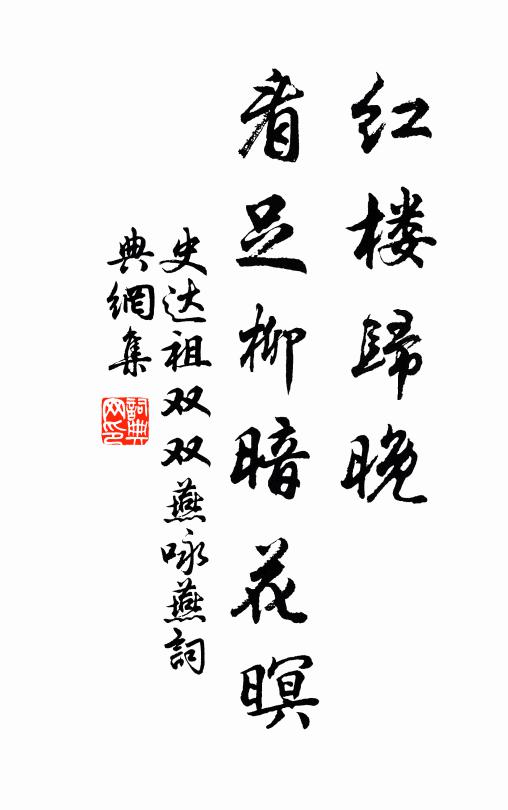 红楼歸晚
看足柳暗花暝
史达祖双双燕咏燕詞
典網集
詞典網印